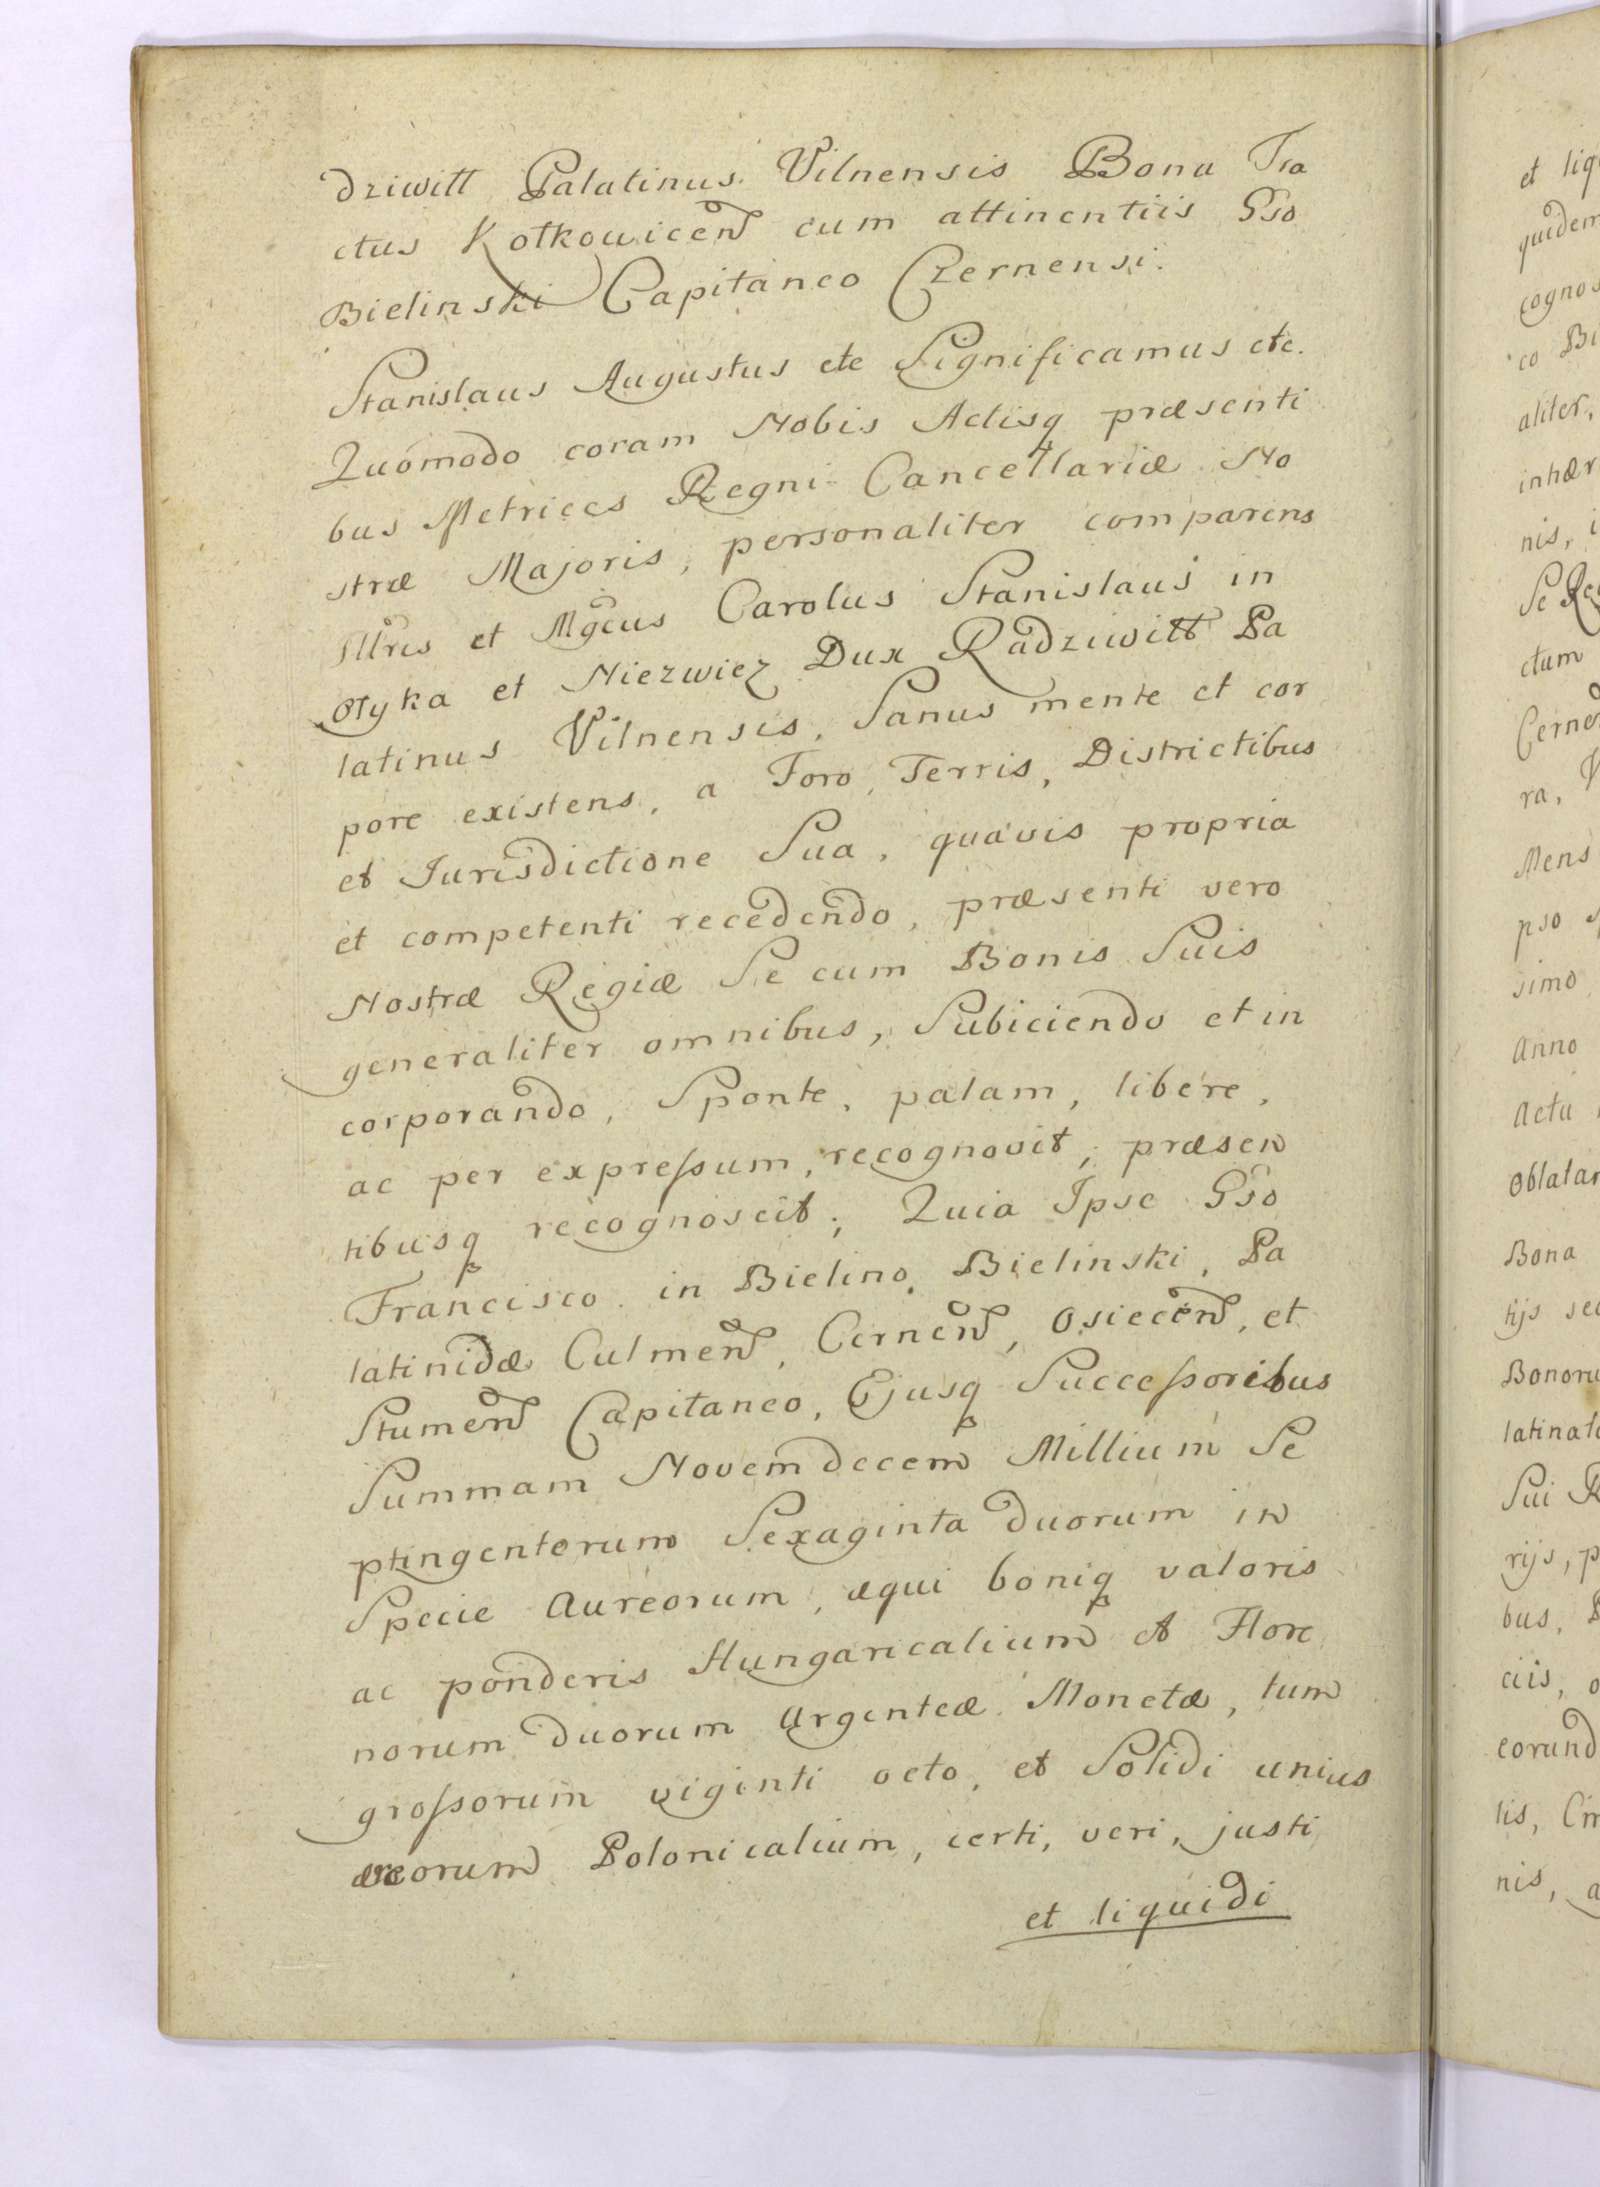 dziwiłł Palatinus Vilnensis Bona Tra
ctus Kotkowiceñ cum attinentiis Gso
Bielinski Capitaneo Czernensi.
Stanislaus Augustus etc Significamus etc.
Quomodo coram Nobis Actisq præsenti
bus Metrices Regni Cancellariæ No
stræ Majoris, personaliter comparens
Illris et Mgcus Carolus Stanislaus in
Ołyka et Niezwiez Dux Radziwiłł Pa
latinus Vilnensis, Sanus mente et cor
pore existens, a Foro, Terris, Districtibus
et Jurisdictione Sua, quavis propria
et competenti recedendo, præsenti vero
Nostræ Regiæ Se cum Bonis Suis
generaliter omnibus, Subiciendo et in
corporando, Sponte, palam, libere,
ac per expressum, recognovit, præsen
tibusq recognoscit; Quia Ipse Gso
Francisco in Bielino Bielinski, Pa
latinidæ Culmeñ, Cerneñ, Osieceñ, et
Stumeñ Capitaneo, Ejusq Successoribus
Summam Novemdecem Millium Se
ptingentorum Sexaginta duorum in
Specie Aureorum, æqui boniq valoris
ac ponderis Hungaricalium et Flore
norum duorum Argenteæ Monetæ, tum
grossorum viginti octo, et Solidi unius
æreorum Polonicalium, certi, veri, justi
et liquidi
et liq
quidem
cognos
co Bi
aliter,
inhær
nis, i
Se Re
ctum
Cerneñ
ra,
Mens
pso
simo
Anno
Actu
Oblatar
Bona
tijs sec
Bonoru
latinat
Sui R
rijs, p
bus,
ciis, o
eorund
tis, Cm
nis, a